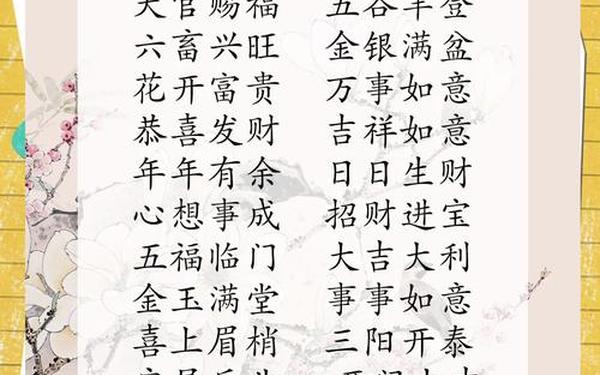 天官赐福 五谷丰登
六畜兴旺 金银满盆
花开富贵 万事如意
恭喜发财 吉祥如意
年年有余 日日生财
心想事成 招财进宝
五福临门 大吉大利
金玉满堂 事事如意
喜上眉梢 三阳开泰